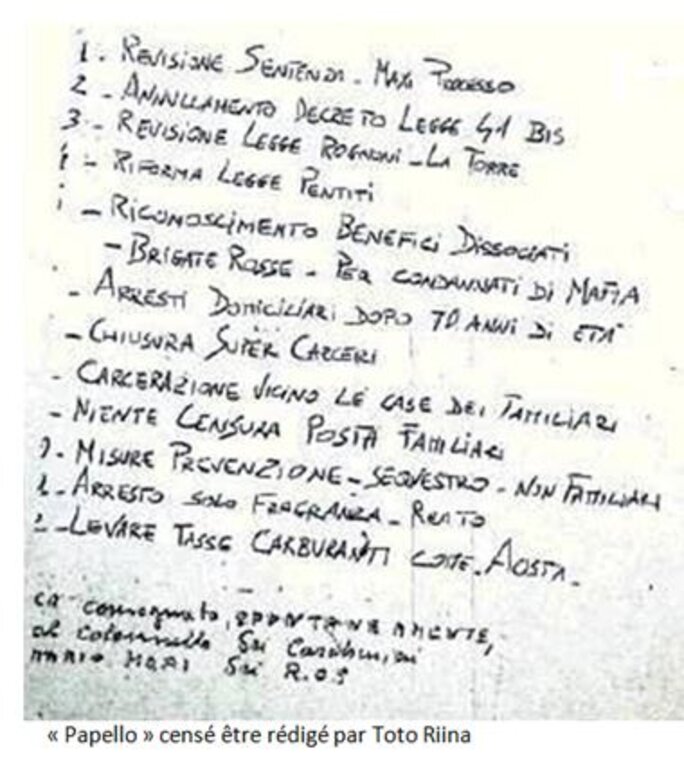 1 - REVISIONE SENTENZA - MAXI PROCESSO
2 - ANNULLAMENTO DECRETO LEGGE 41 BIS
3 - REVISIONE LEGGE ROGNONI - LA TORRE
- RIFORMA LEGGE PENTITI
- RICONOSCIMENTO BENEFICI DISSOCIATI
- BRIGATE ROSSE - PER CONDANNATI DI MAFIA
- ARRESTI DOMICILIARI DOPO 70 ANNI DI ETA'
- CHIUSURA SUPER CARCERI
- CARCERAZIONE VICINO LE CASE DEI FAMILIARI
- NIENTE CENSURA POSTA FAMILIARI
- MISURE PREVENZIONE - SEQUESTRO - NON FAMILIARI
- ARRESTO SOLO FRAGRANZA - REATO
- LEVARE TASSE CARBURANTI COME AOSTA -
consegnato, SPONTANEAMENTE,
al Colonnello dei Carabinieri
MARIO MORI dei R.O.S
« Papello » censé être rédigé par Toto Riina